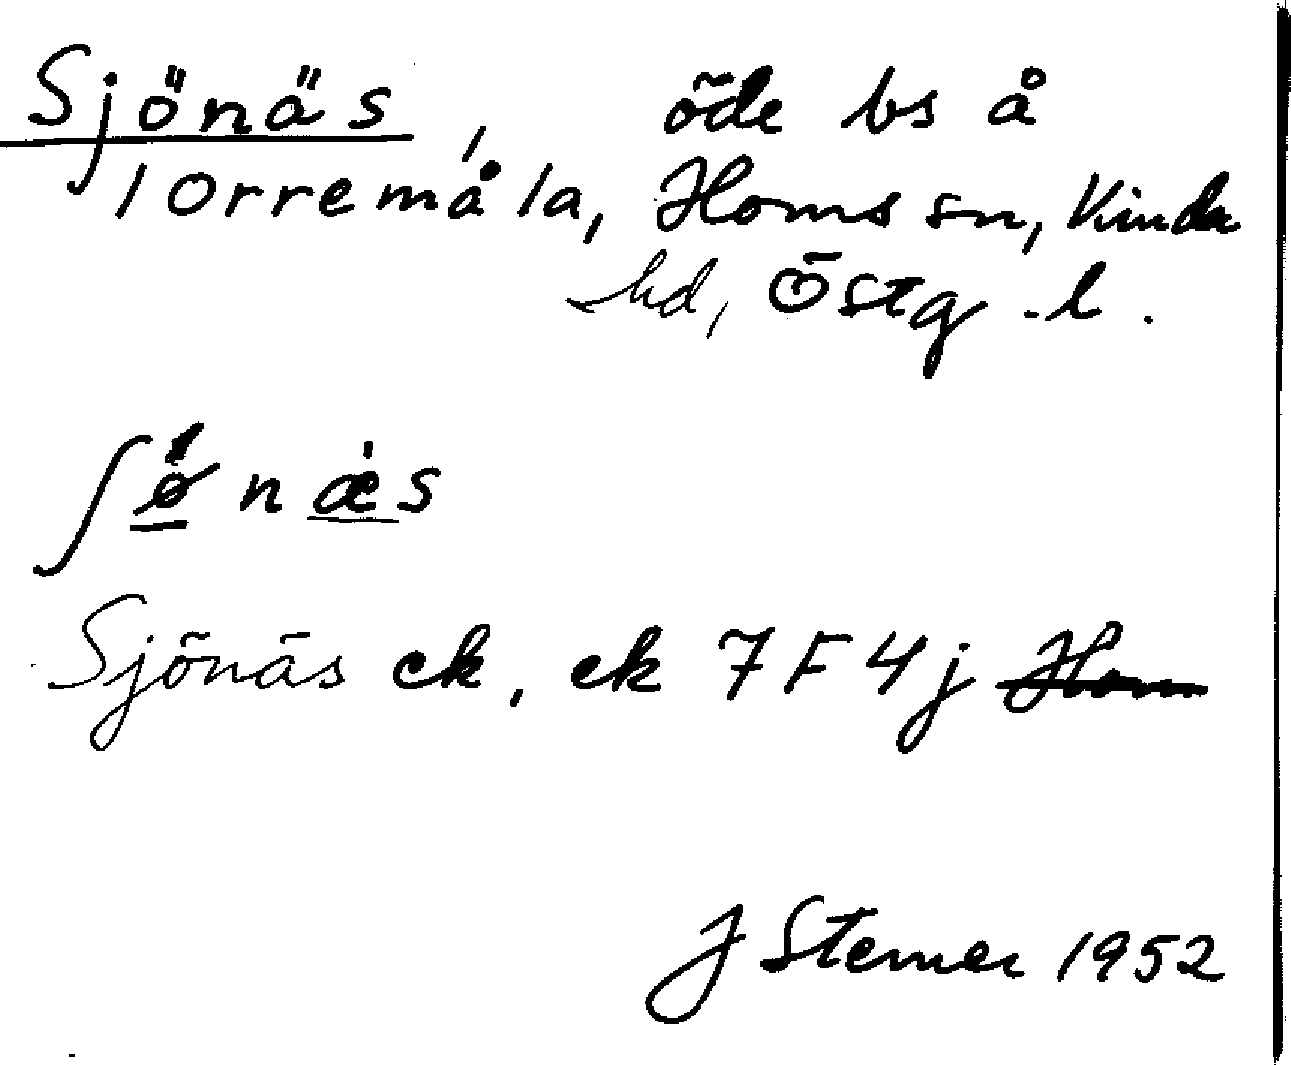 Sjönäs, öde bs å
Torremåla, Horns sn, Kinda
hd, Östg.l.
Sjönäs ek, ek 7F4j Horn
J Sterner 1952